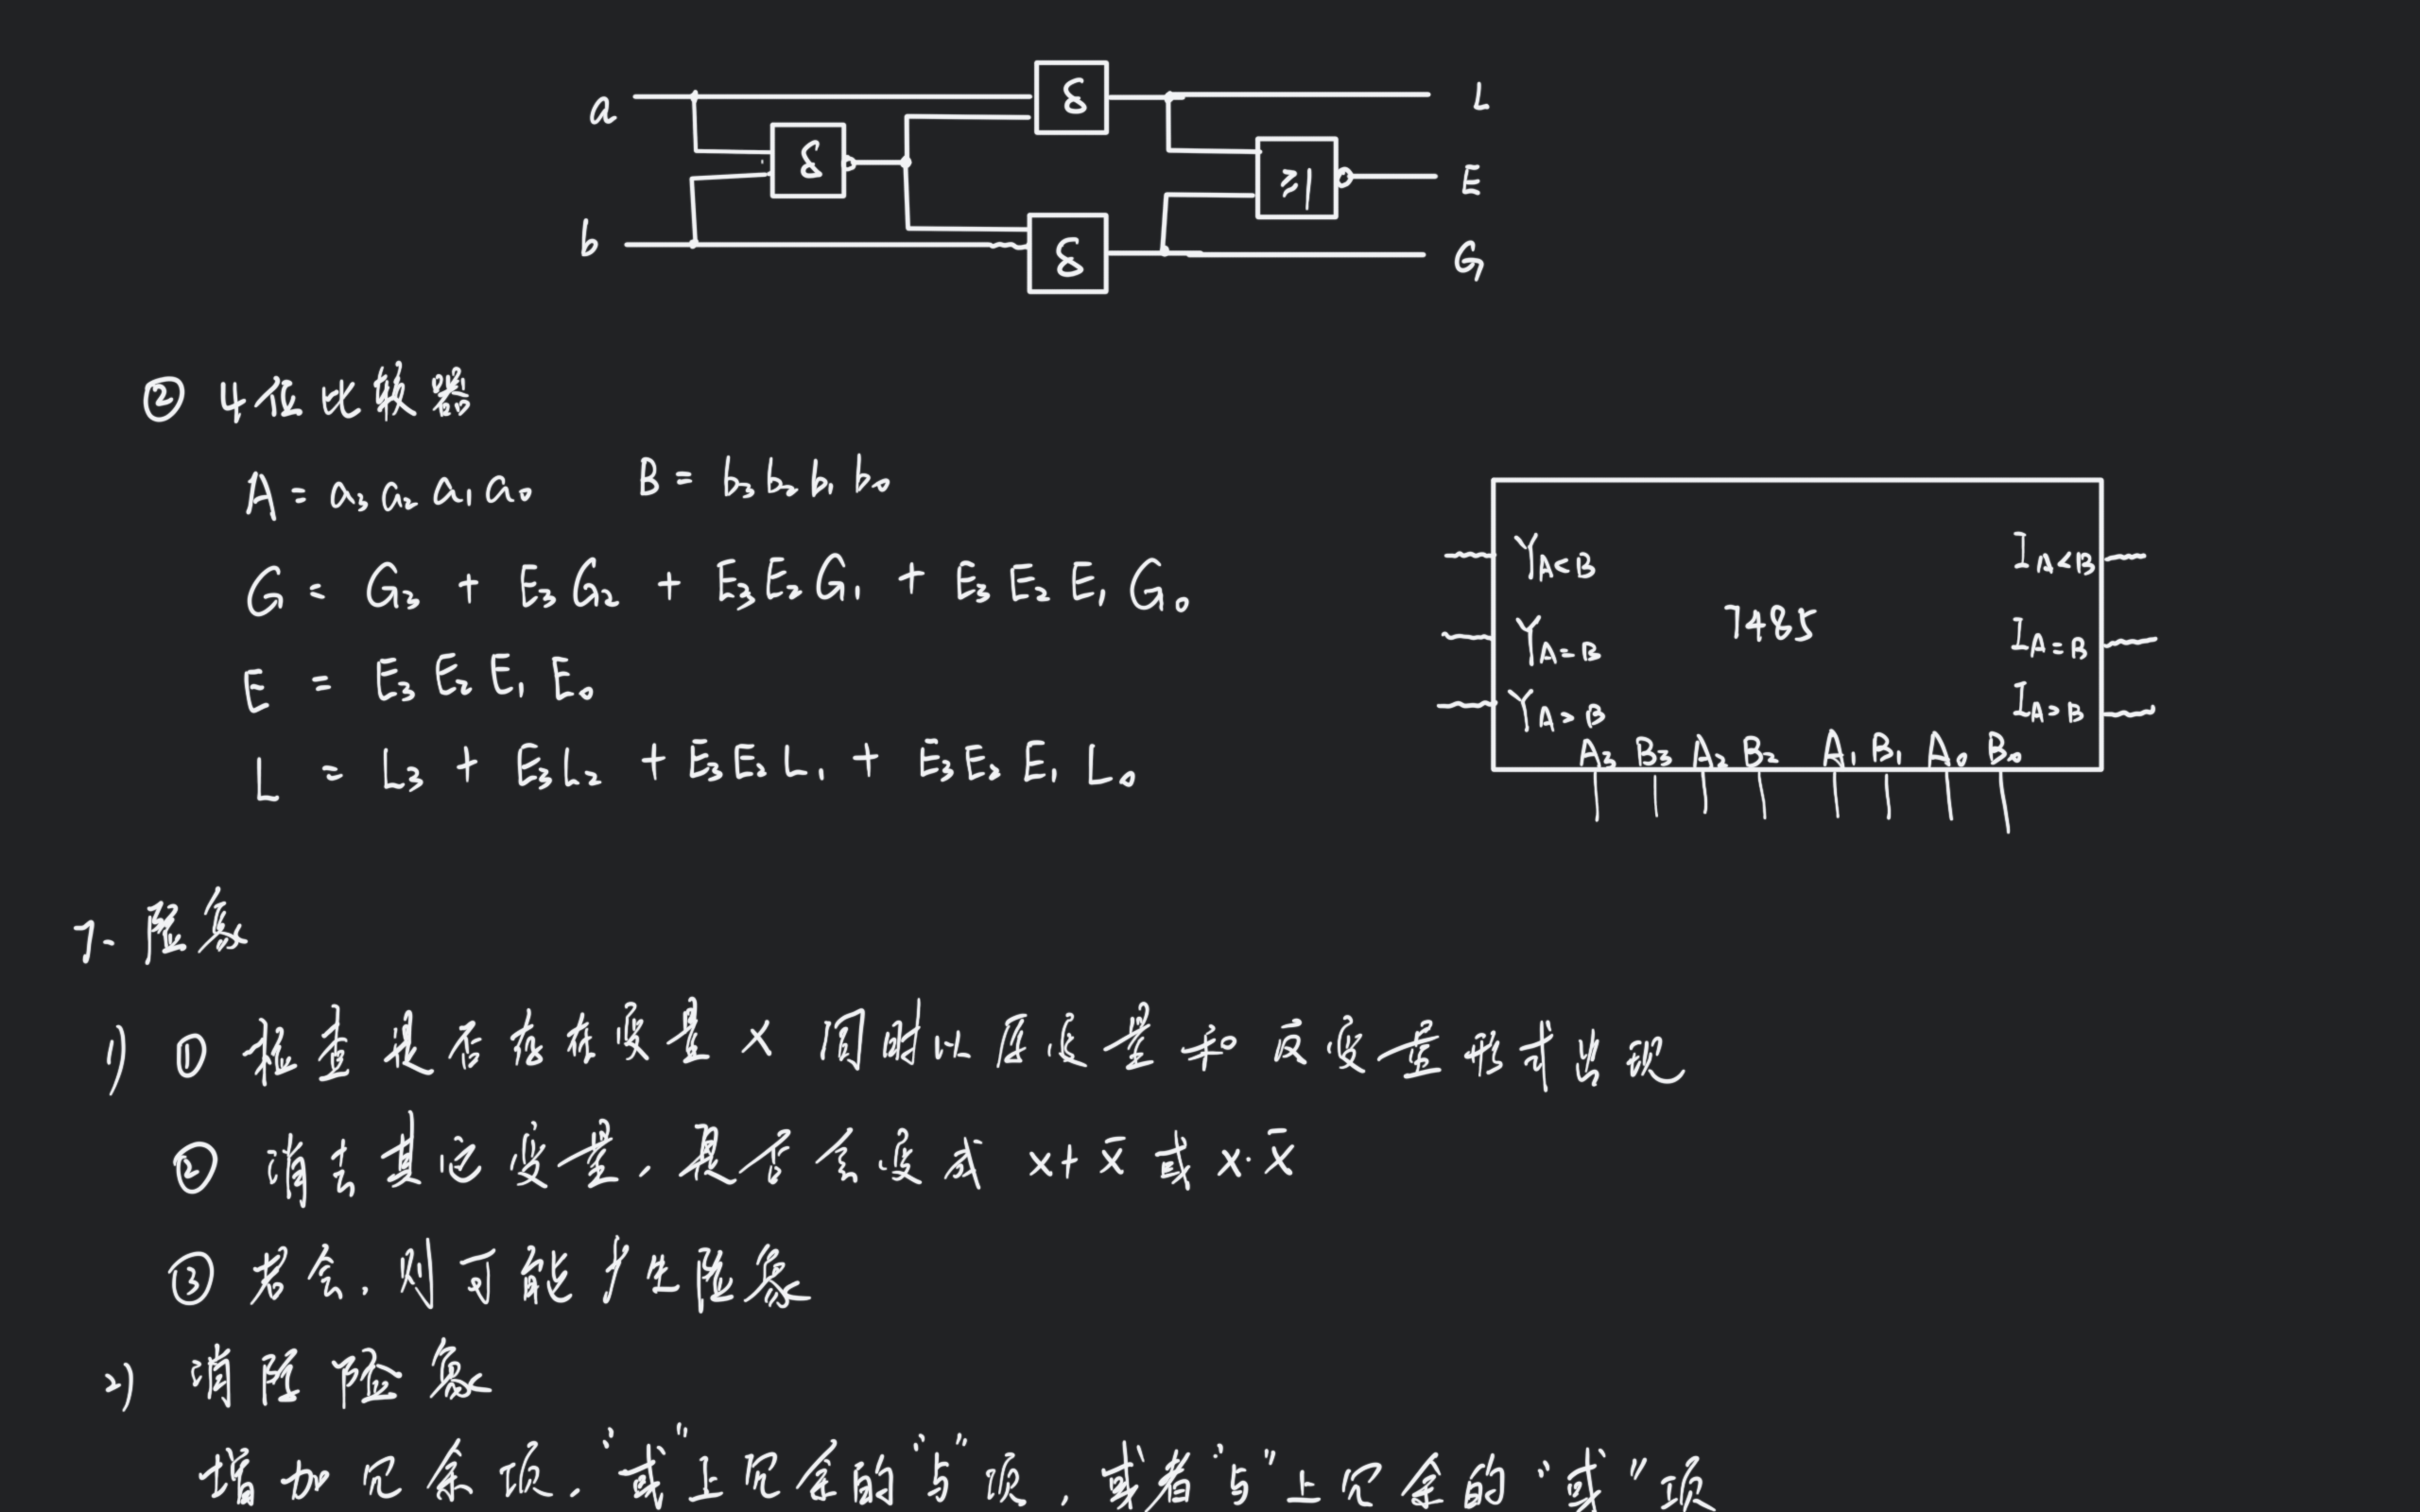 a & L
& ≥1 E
b & G
② 4位比较器
A = a₃a₂a₁a₀ B = b₃b₂b₁b₀
G = G₃ + E₃G₂ + E₃E₂G₁ + E₃E₂E₁G₀
E = E₃E₂E₁E₀
L = L₃ + E₃L₂ + E₃E₂L₁ + E₃E₂E₁L₀
Y_A<B I_A<B
7485
Y_A=B I_A=B
Y_A>B I_A>B
A₃ B₃ A₂ B₂ A₁ B₁ A₀ B₀
7. 险象
1) ① 检查是否存在变量 x 同时以原变量和反变量形式出现
② 消去其它变量,是否会变成 x+x̄ 或 x·x̄
③ 若会,则可能产生险象
2) 消除险象
增加冗余项,“或”上冗余的“与”项,或者“与”上冗余的“或”项